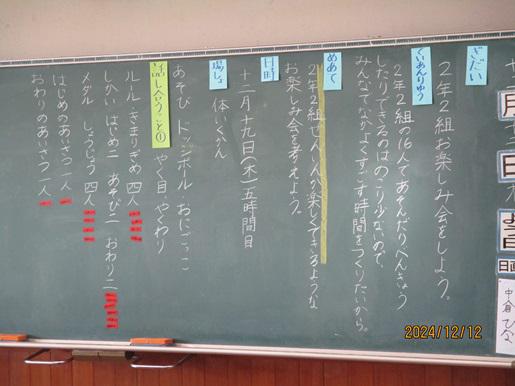 ぎだい
2年2組お楽しみ会をしよう。
ていあんりゆう
2年2組の16人であそんだりべんきょう
したりできるのはのこり少ないので、
みんなでなかよくすごす時間をつくりたいから。
めあて
2年2組ぜんいんが楽しくできるような
お楽しみ会を考えよう。
日時
十二月十九日(木)五時間目
場しょ
体いくかん
あそび ドッジボール おにごっこ
話し合うこと①
やく目・やくわり
ルール・きまりぎめ 四人
しかい はじめ二 あそび二 おわり二
メダル しょうじょう 四人
はじめのあいさつ 一人
おわりのあいさつ 一人
月
日
日直
2024/12/12